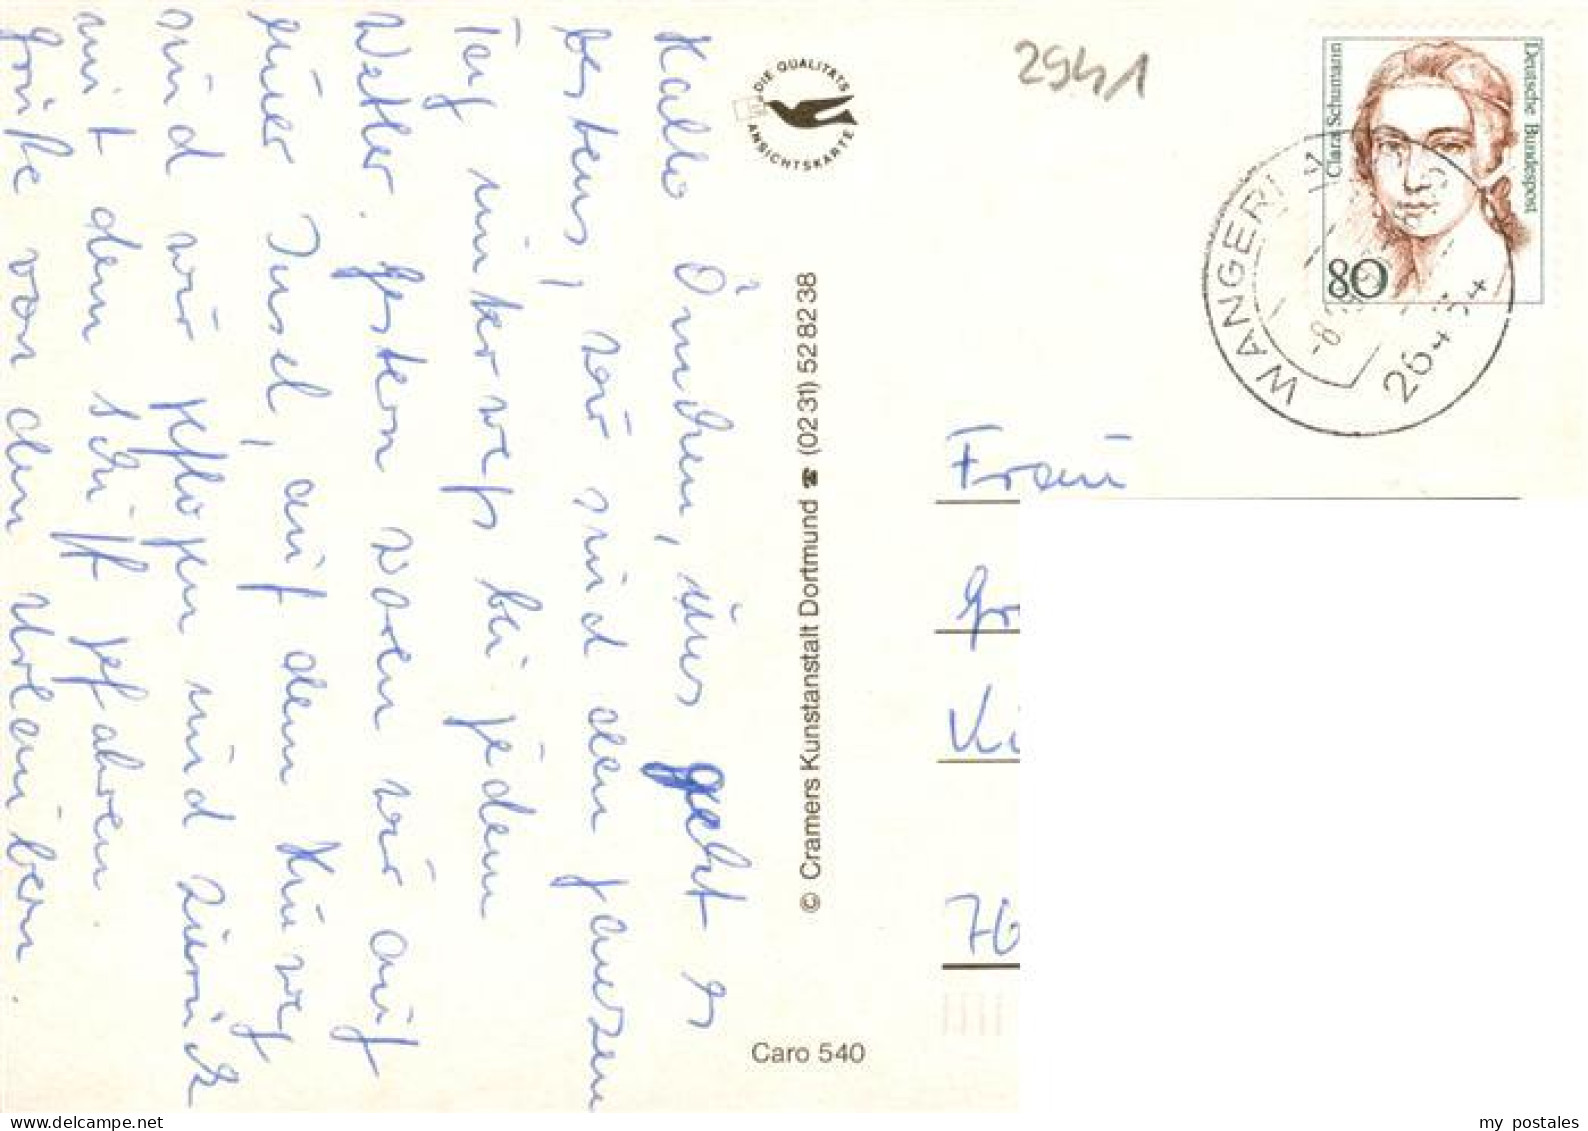 Hallo Ömchen, uns geht es
bestens, wir sind den ganzen
Tag unterwegs bei jedem
Wetter. Gestern waren wir auf
einer Insel, auf dem Hinweg
sind wir geflogen und zurück
mit dem Schiff gefahren.
Grüße von den Urlaubern.
DIE QUALITÄTS
ANSICHTSKARTE
© Cramers Kunstanstalt Dortmund ☎ (02 31) 52 82 38
Caro 540
2941
Clara Schumann
Deutsche Bundespost
80
WANGERL
264 4
Frau
Gr
Ki
70
my postales